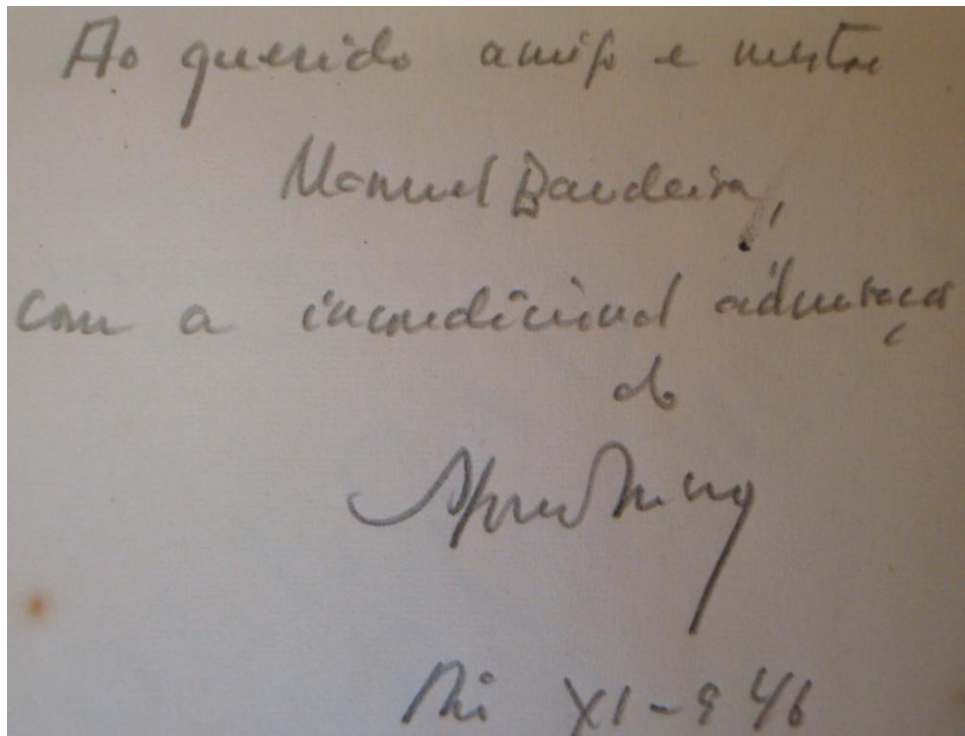 Ao querido amigo e mestre
Manuel Bandeira,
com a incondicional admiração
do
Rio XI-946